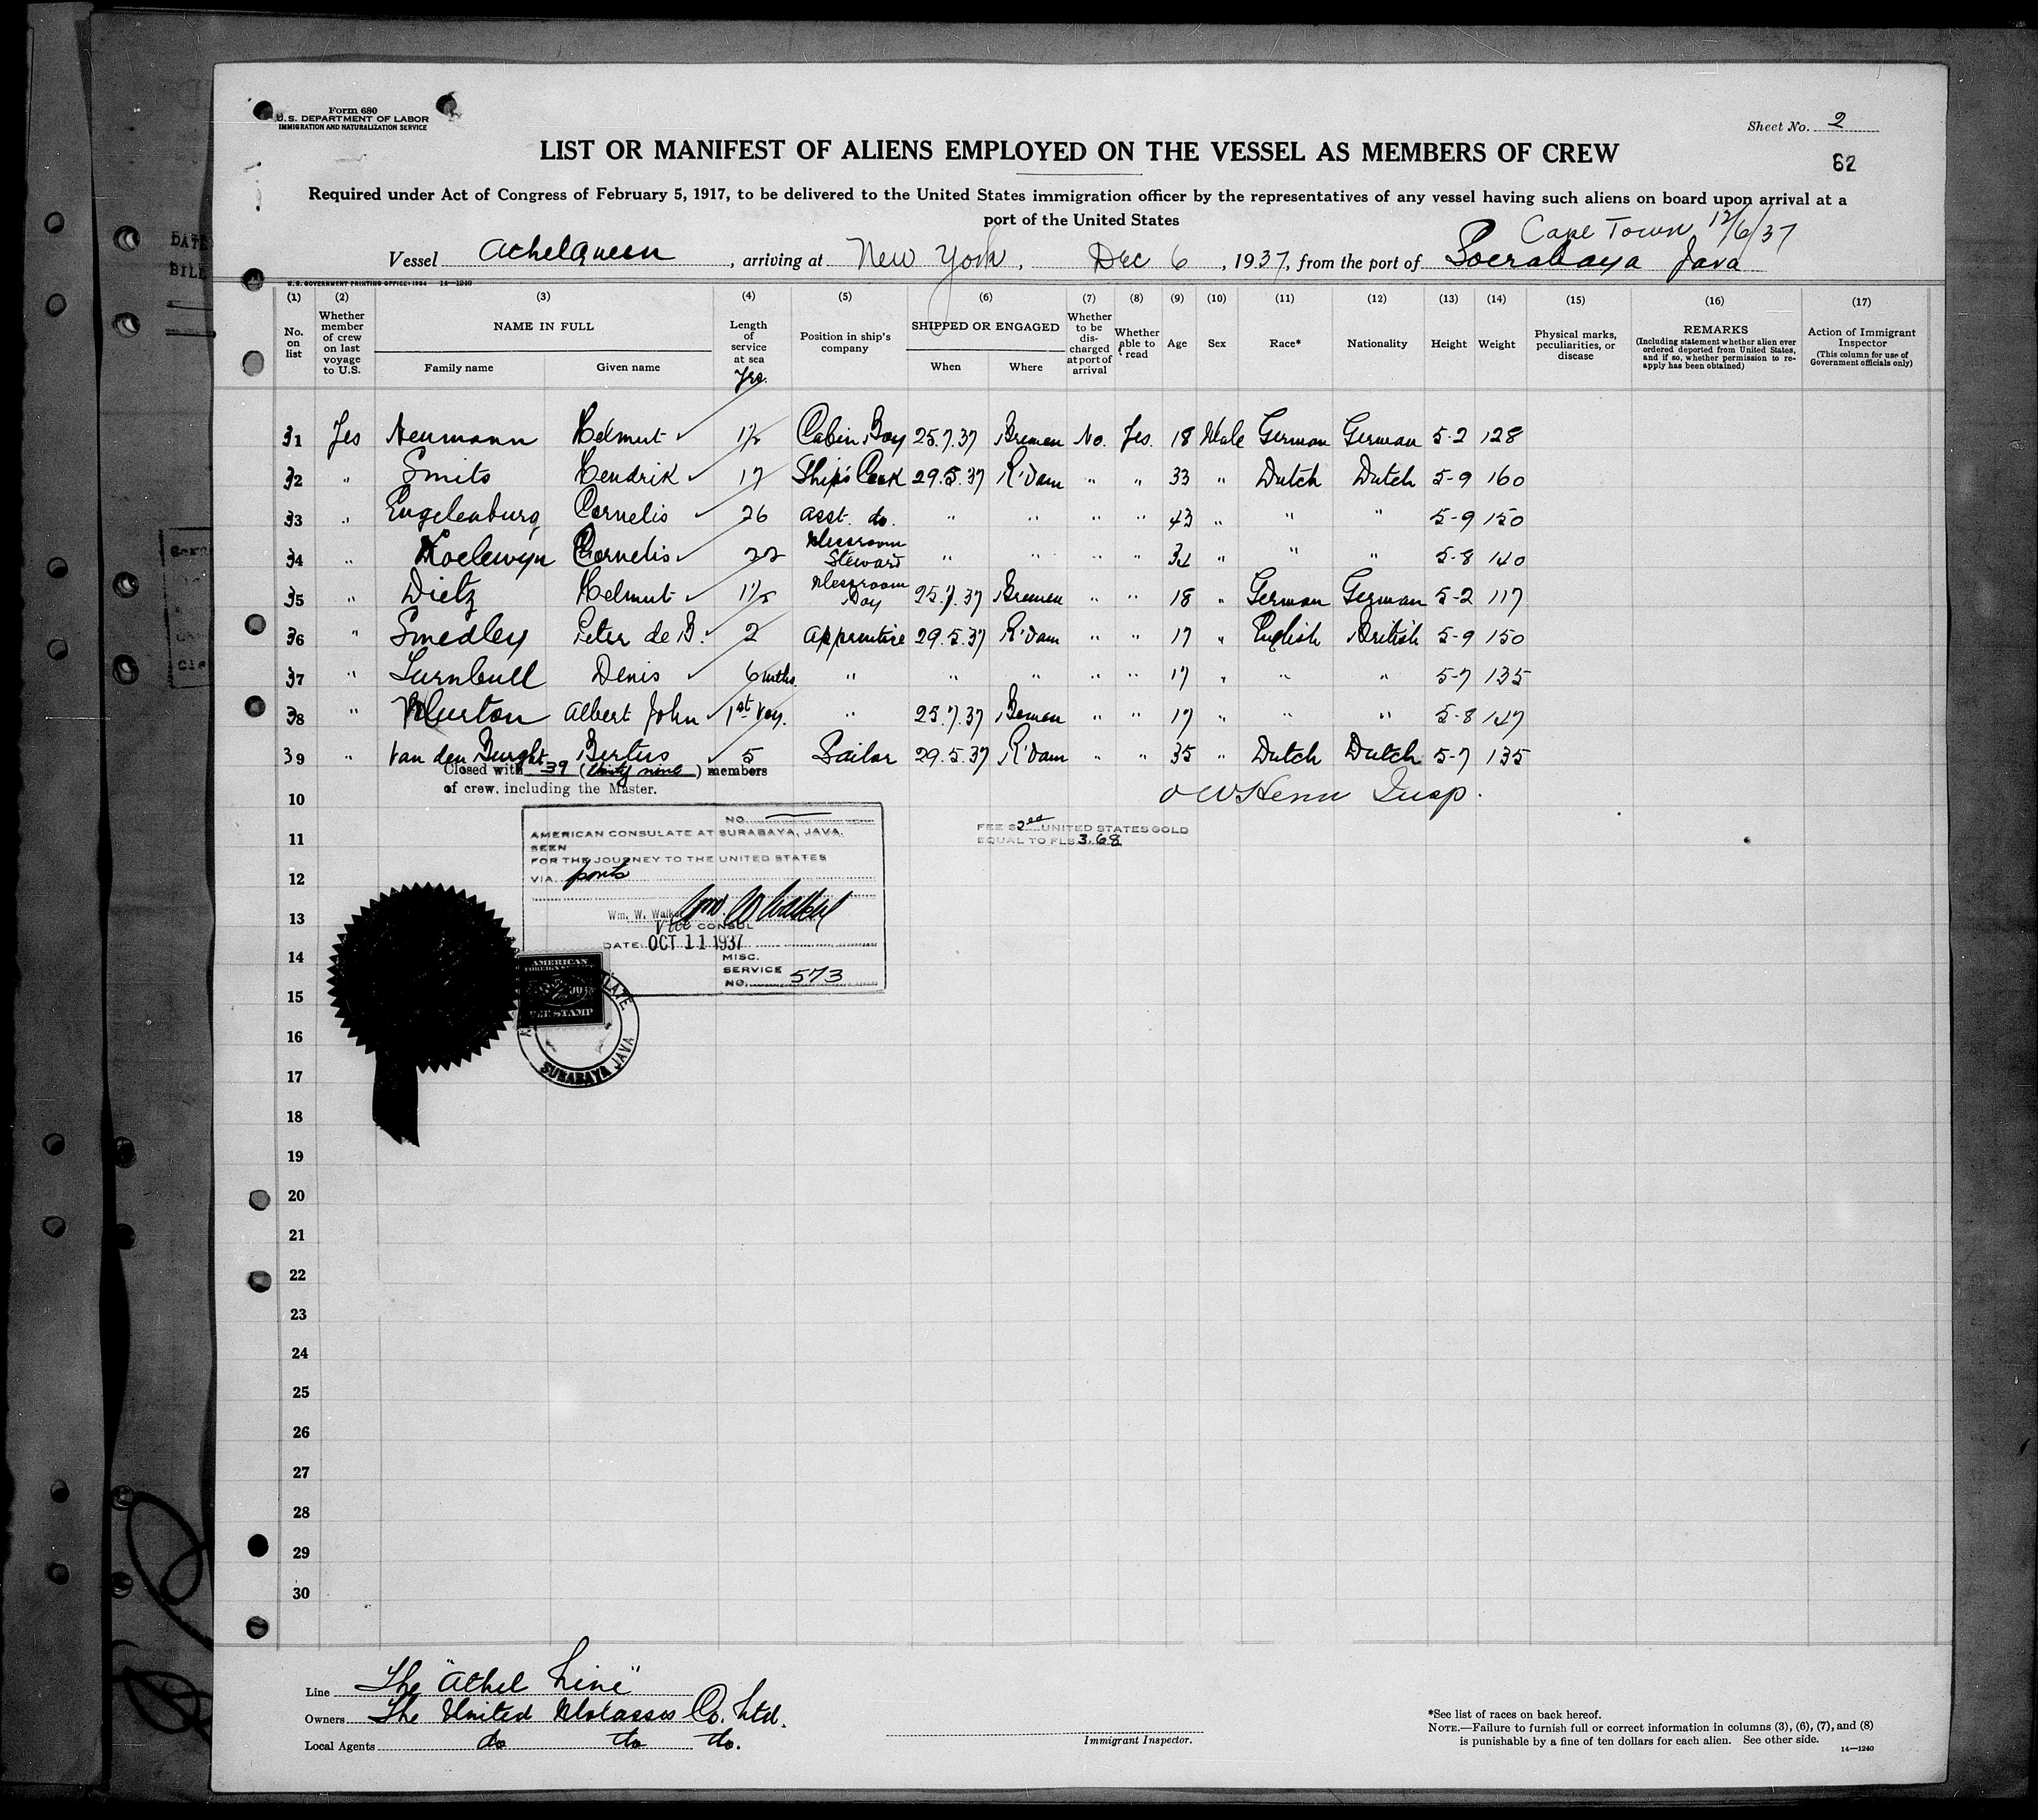 Form 680
U.S. DEPARTMENT OF LABOR
IMMIGRATION AND NATURALIZATION SERVICE
Sheet No. 2
62
LIST OR MANIFEST OF ALIENS EMPLOYED ON THE VESSEL AS MEMBERS OF CREW
Required under Act of Congress of February 5, 1917, to be delivered to the United States immigration officer by the representatives of any vessel having such aliens on board upon arrival at a
port of the United States
Cape Town 12/6/37
Vessel Athelqueen, arriving at New York, Dec 6, 1937, from the port of Soerabaya Java
U.S. GOVERNMENT PRINTING OFFICE: 1934 14—1240
(1) (2) (3) (4) (5) (6) (7) (8) (9) (10) (11) (12) (13) (14) (15) (16) (17)
No. on list
Whether member of crew on last voyage to U.S.
NAME IN FULL
Family name Given name
Length of service at sea
Yrs.
Position in ship's company
SHIPPED OR ENGAGED
When Where
Whether to be discharged at port of arrival
Whether able to read
Age Sex Race* Nationality Height Weight
Physical marks, peculiarities, or disease
REMARKS
(Including statement whether alien ever ordered deported from United States, and if so, whether permission to reapply has been obtained)
Action of Immigrant Inspector
(This column for use of Government officials only)
31 Yes Neumann Helmut 1½ Cabin Boy 25.7.37 Bremen No. Yes 18 Male German German 5-2 128
32 " Smits Hendrik 17 Ship's Cook 29.5.37 R'dam " " 33 " Dutch Dutch 5-9 160
33 " Engelenburg Cornelis 26 Asst. do. " " " " 43 " " " 5-9 150
34 " Koelewyn Cornelis 22 Messroom Steward " " " " 34 " " " 5-8 140
35 " Dietz Helmut 1½ Messroom Boy 25.7.37 Bremen " " 18 " German German 5-2 117
36 " Smedley Peter de B. 2 Apprentice 29.5.37 R'dam " " 17 " English British 5-9 150
37 " Turnbull Denis 6 mths. " " " " " 17 " " " 5-7 135
38 " Murton Albert John 1st Voy. " 25.7.37 Bremen " " 17 " " " 5-8 147
39 " Van den Burght Bertus 5 Sailor 29.5.37 R'dam " " 35 " Dutch Dutch 5-7 135
Closed with 39 (thirty nine) members
of crew, including the Master.
Insp.
10
NO.
AMERICAN CONSULATE AT SURABAYA, JAVA.
SEEN
FOR THE JOURNEY TO THE UNITED STATES
VIA ports
Wm. W. Walker
Vice CONSUL
DATE: OCT 11 1937
MISC.
SERVICE
NO. 573
FEE $2.00 UNITED STATES GOLD
EQUAL TO FLS 3.68
AMERICAN
FOREIGN SERVICE
FEE STAMP
SURABAYA JAVA
11
12
13
14
15
16
17
18
19
20
21
22
23
24
25
26
27
28
29
30
Line The "Athel Line"
Owners The United Molasses Co. Ltd.
Local Agents do do do.
Immigrant Inspector.
*See list of races on back hereof.
NOTE.—Failure to furnish full or correct information in columns (3), (6), (7), and (8)
is punishable by a fine of ten dollars for each alien. See other side.
14—1240